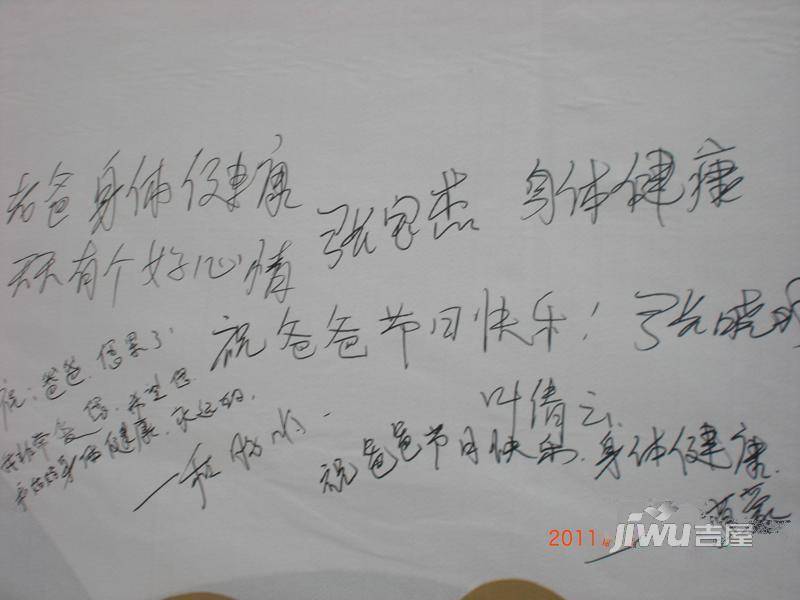 老爸身体健康
天天有个好心情
张宝杰
身体健康
祝爸爸节日快乐！张晓
祝：爸爸，您累了，
您，希望您
身体健康，永远的，
叶倩云
祝爸爸节日快乐，身体健康，
2011
JIWU吉屋